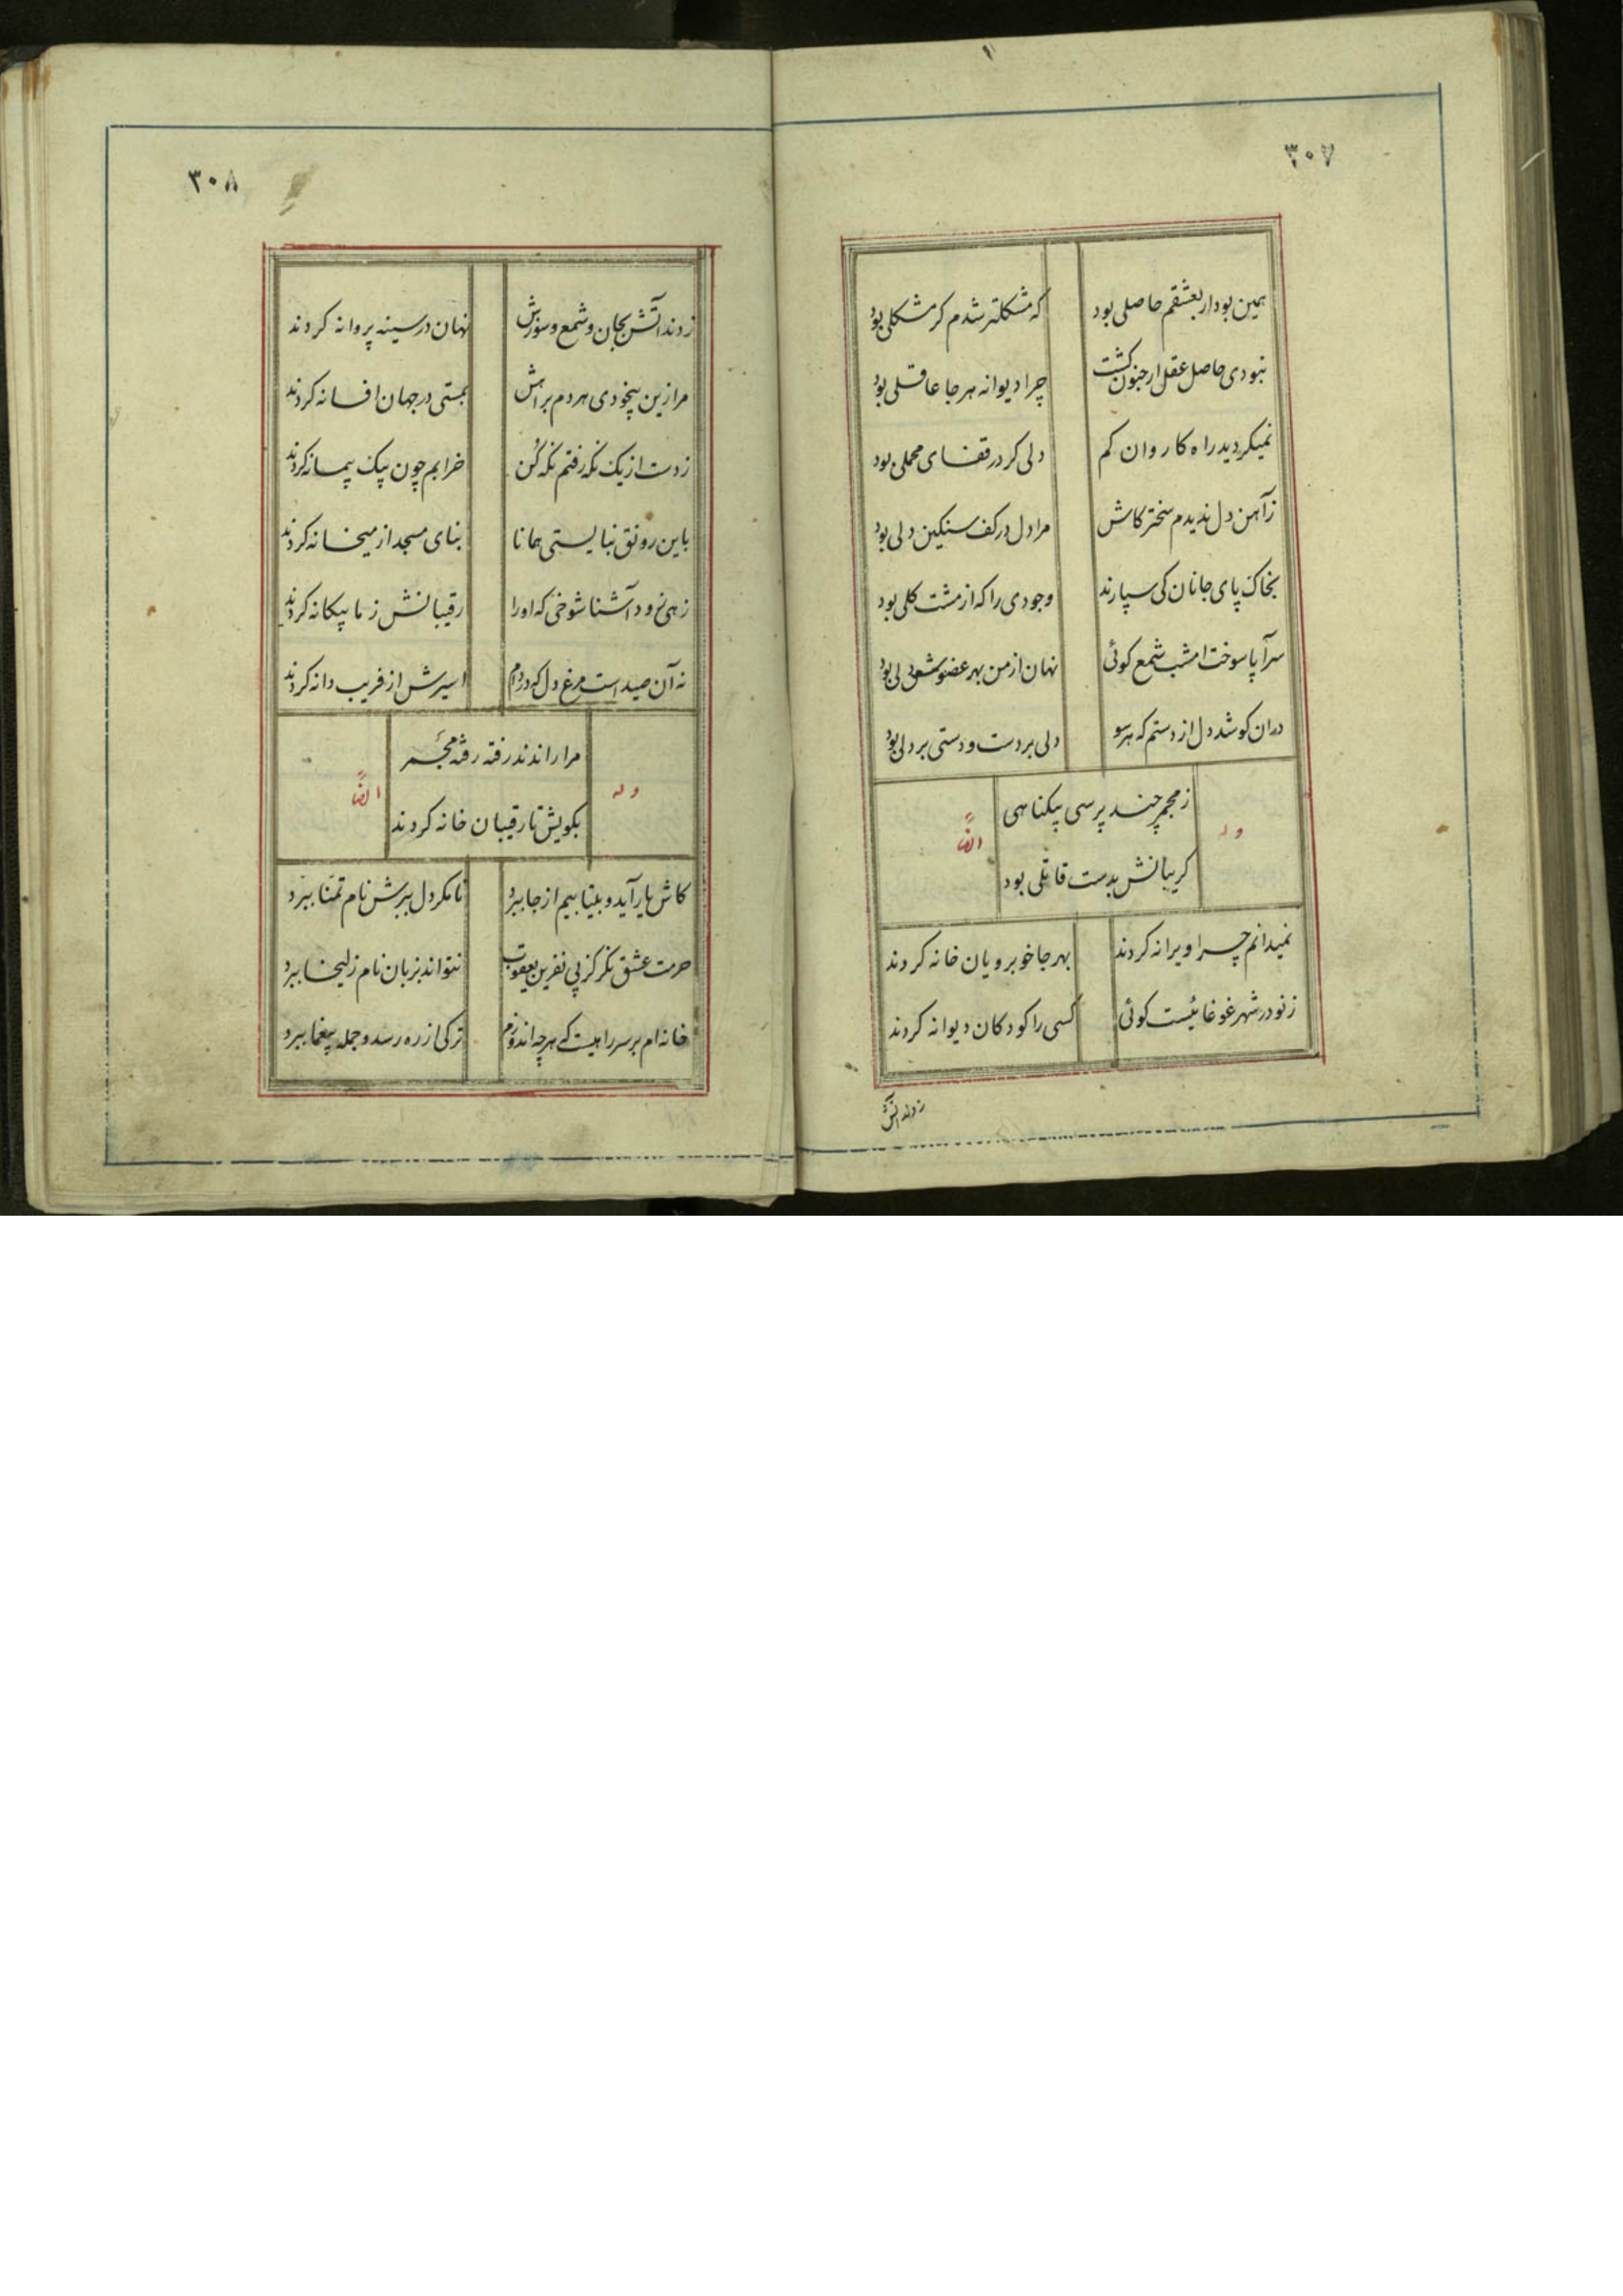 ۳۰۷
همین بود ار بعشقم حاصلی بود
که مشکلتر شدم کر مشکلی بود
نبودی حاصل عقل ار جنون کشت
چرا دیوانه هرجا عاقلی بود
نمیکردید راه کاروان کم
دلی کر در قفای محملی بود
زآهن دل ندیدم سختر کاش
مرا دل در کف سنکین دلی بود
بخاک پای جانان کی سپارند
وجودی را که از مشت کلی بود
سرآپا سوخت امشب شمع کوئی
نهان از من بهر عضوش دلی بود
دران کو شد دل از دستم که هر سو
دلی بر دست و دستی بر دلی بود
وله
زمجمر چند پرسی بیکناهی
ایضاً
کریبانش بدست قاتلی بود
نمیدانم چرا ویرانه کردند
بهر جا خوبرویان خانه کردند
زنو در شهر غوغائیست کوئی
کسی را کودکان دیوانه کردند
زدند آتش
۳۰۸
زدند آتش بجان و شمع و سوزش
نهان در سینه پروانه کردند
مرا زین بیخودی هر دم براهش
بمستی در جهان افسانه کردند
زدست از یک نکه رفتم نکه کن
خرابم چون بیک پیمانه کردند
باین رونق نبایستی همانا
بنای مسجد از میخانه کردند
زهی زود آشنا شوخی که او را
رقیبانش ز ما بیکانه کردند
نه آن صید است مرغ دل که در دام
اسیرش از فریب دانه کردند
وله
مرا راندند رفته رفته مجمر
ایضاً
بکویش تا رقیبان خانه کردند
کاش یار آید و بیتابیم از جا ببرد
تا مکر دل ببرش نام تمنا ببرد
حرمت عشق نکر کز پی نفرین یعقوب
نتواند بزبان نام زلیخا ببرد
خانه ام بر سر راهیست که هرچه اندوزم
ترکی از ره رسد و جمله بیغما ببرد